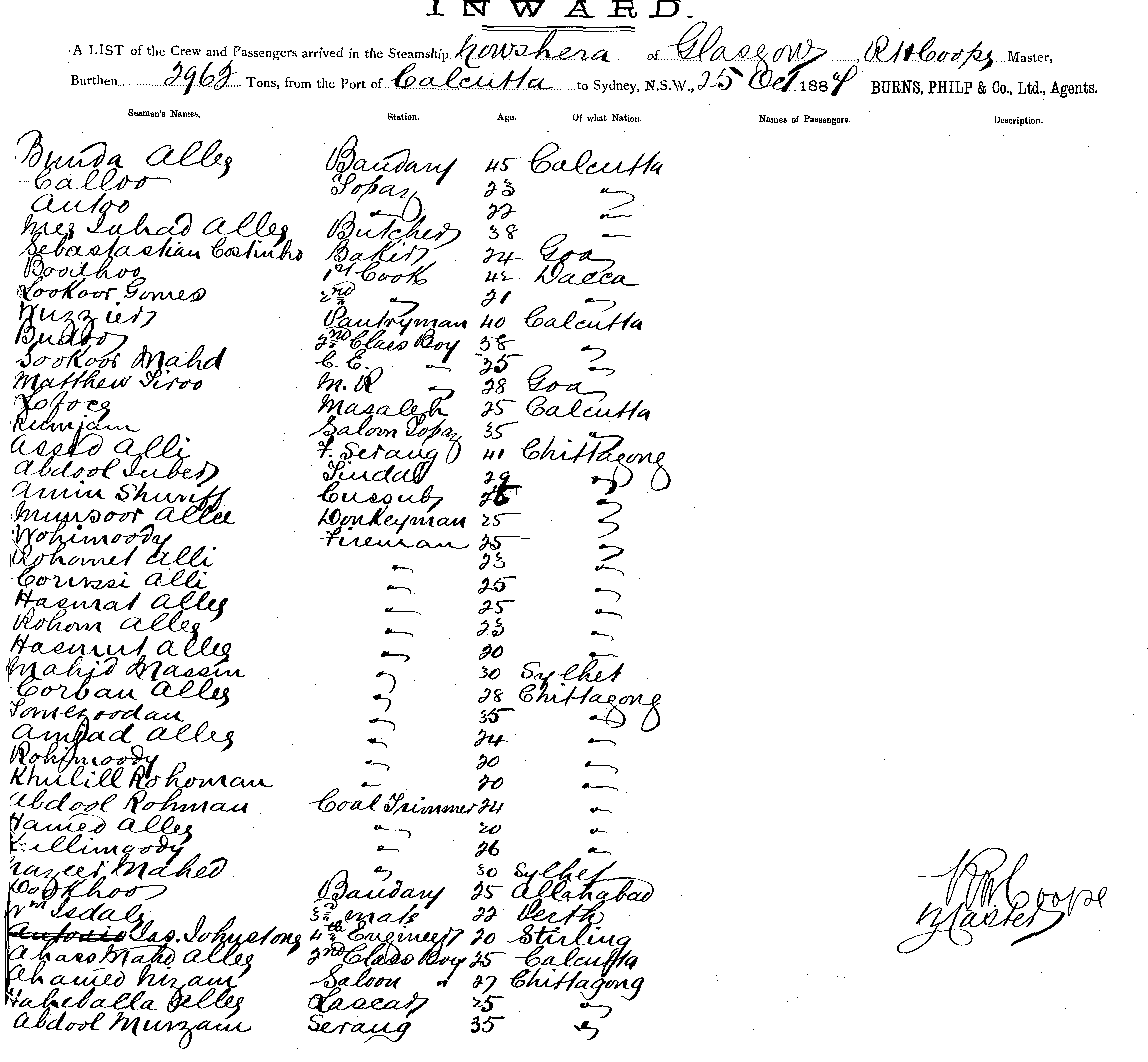 INWARD.
A LIST of the Crew and Passengers arrived in the Steamship Nowshera of Glasgow R H Coope Master,
Burthen 2962 Tons, from the Port of Calcutta to Sydney, N.S.W., 25 Oct 1884 BURNS, PHILP & Co., Ltd., Agents.
Seamen's Names. Station. Age. Of what Nation. Names of Passengers. Description.
Bunda Alley Baudary 45 Calcutta
Calloo Topaz 23 "
Autoo " 22 "
Alley Butcher 38 "
Sebastastian Costinho Baker 24 Goa
Boodhoo 1st Cook 42 Dacca
Lookoor Gomes 2nd " 21 "
Wuzzier Pantryman 40 Calcutta
Budloo 2nd Class Boy 38 "
Sookoor Mahd C. E. " 25 "
Matthew Siroo M. R " 28 Goa
Masaleh 25 Calcutta
Rumjam Saloon Topaz 35 "
Assed Alli F. Serang 41 Chittagong
Abdool Tindal 29 "
Amin Shuriff Cussub "
Munsoor Allee Donkeyman 25 "
Wohimoody Fireman 25 "
Rohamet Alli " 23 "
Alli " 25 "
Hasmat Alley " 25 "
Rohom Alley " 23 "
Hasmut Alley " 20 "
Mahid Massim " 30 Sylhet
Corban Alley " 28 Chittagong
" 35 "
Amjad Alley " 24 "
Rohimoody " 20 "
Khulill Rohoman " 20 "
Abdool Rohman Coal Trimmer 24 "
Hamed Alley " 20 "
" 26 "
Nazeer Mahed " 30 Sylhet
Baudary 25 Allahabad
Wm Tsdale 3rd mate 22 Perth
Jas. Johnstong 4th Engineer 20 Stirling
Mahd Alley 2nd Class Boy 25 Calcutta
Ahamed Nizam Saloon " 27 Chittagong
Alley Lascar 25 "
Abdool Murzam Serang 35 "
R H Coope
Master